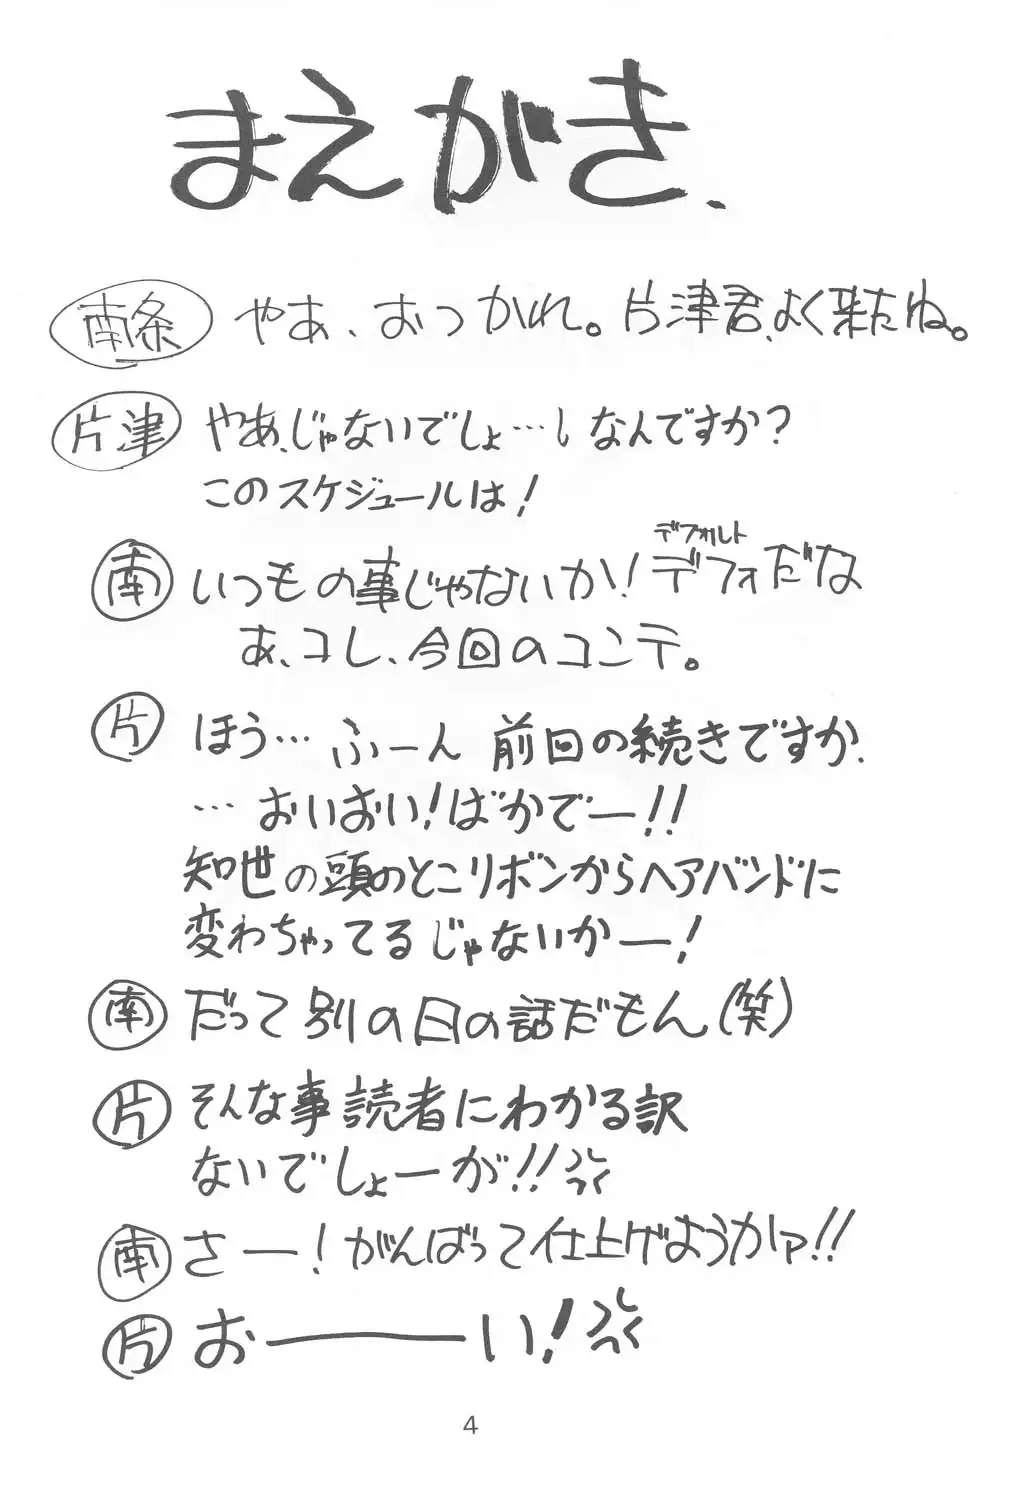 まえがき.
南条 やあ、おつかれ。片津君、よく来たね。
片津 やあ、じゃないでしょ…しなんですか?
このスケジュールは!
デフォルト
南 いつもの事じゃないか!デフォだな
あ、コレ、今回のコンテ。
片 ほう…ふーん 前回の続きですか.
…おいおい!ばかでー!!
知世の頭のとこリボンからヘアバンドに
変わちゃってるじゃないかー!
南 だって別の日の話だもん(笑)
片 そんな事読者にわかる訳
ないでしょーが!!
南 さー!がんばって仕上げようかァ!!
片 おーーい!
4